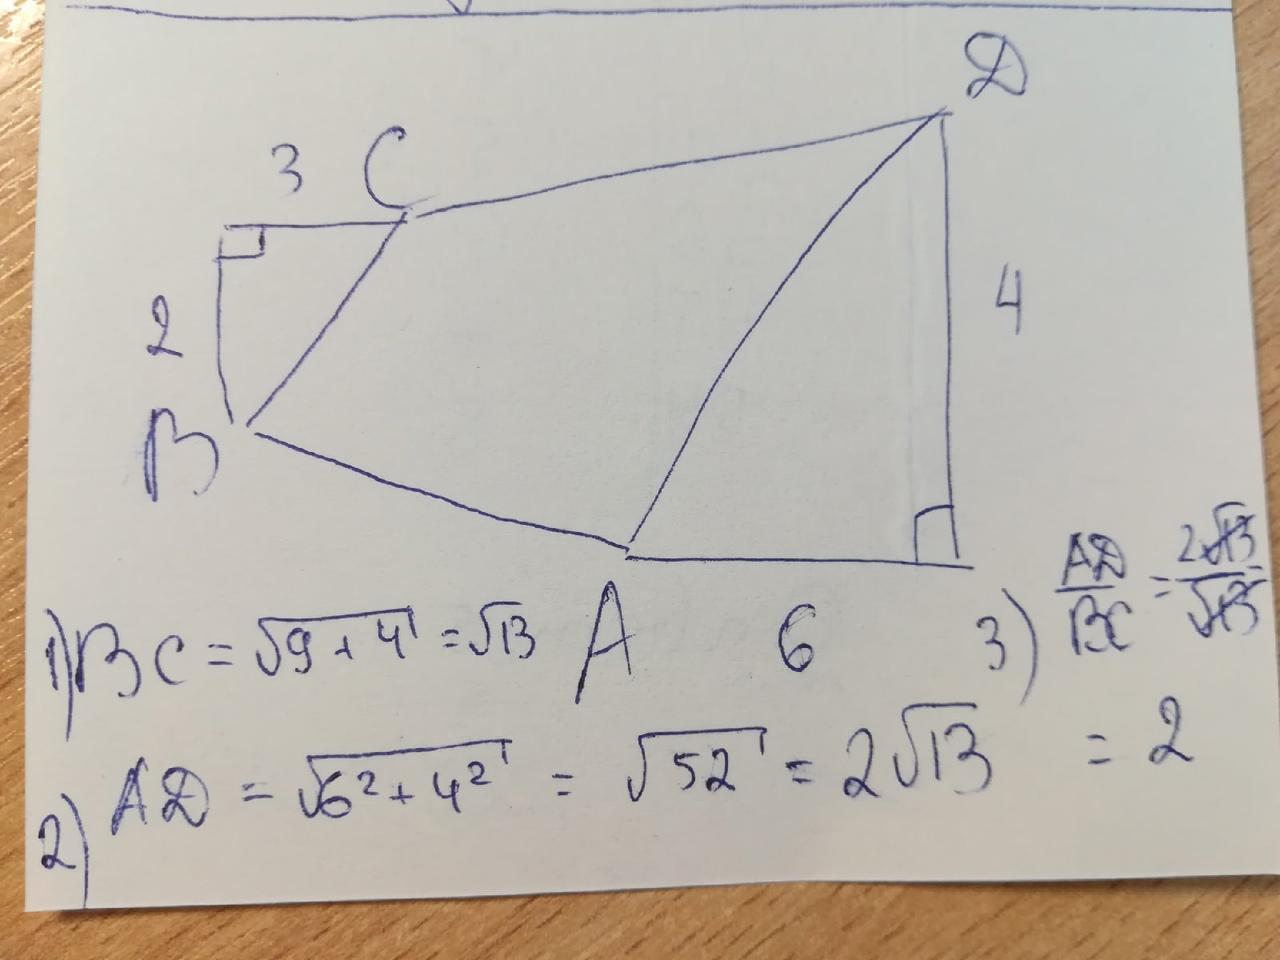 D
3 C
2
4
B
A
6
1) BC = √9+4 = √13
3) AD/BC = 2√13/√13 = 2
2) AD = √6²+4² = √52 = 2√13